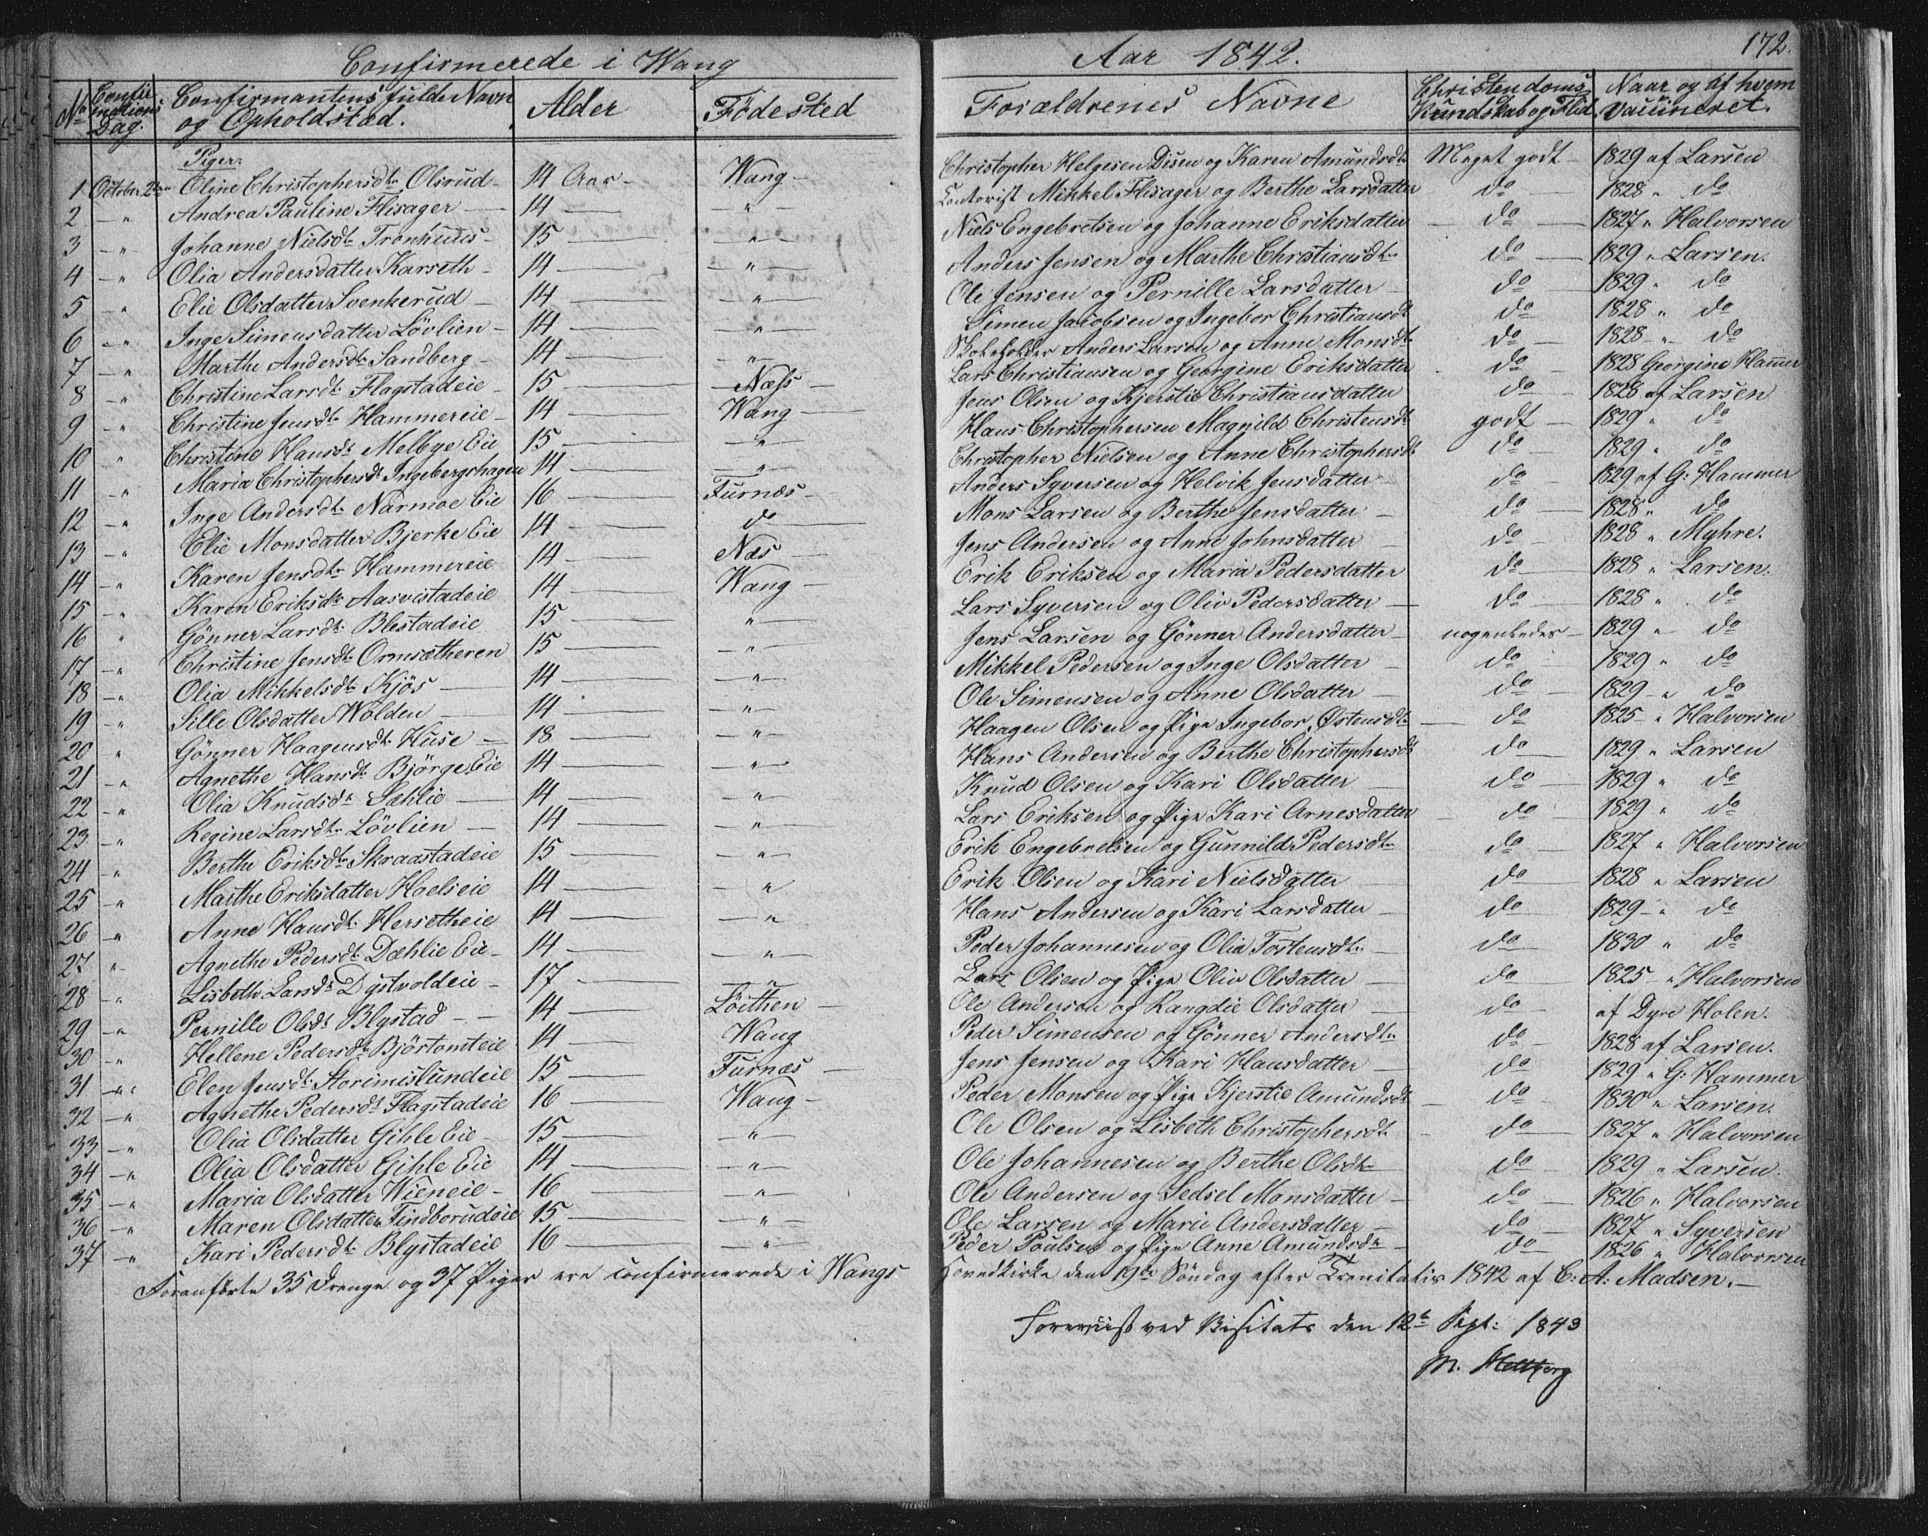 Confirmerede i Wang Aar 1842. 172.
No Confirmations Dag. Confirmantens fulde Navn og Opholdstæd. Alder Födested Forældrenes Navne Christendoms Kundskab og Flid Naar og af hvem vaccineret.
Piger.
1 October 2den Oline Christophersdtr Olsrud 14 Aar Wang Christopher Helgesen Disen og Karen Amundsdtr Meget godt 1829 af Larsen
2 " Andrea Pauline Flisager 14 " Contorist Mikkel Flisager og Berthe Larsdatter do 1828 " do
3 " Johanne Nielsdtr Tronhuus 15 " Niels Engebretsen og Johanne Eriksdatter do 1827 " Halvorsen
4 " Olia Andersdatter Karseth 14 " Anders Jensen og Marthe Christiansdtr do 1829 " Larsen.
5 " Elie Olsdatter Svenkerud 14 " Ole Jensen og Pernille Larsdatter do 1829 " do
6 " Inge Simensdatter Lövlien 14 " Simen Jacobsen og Ingebor Christiansdt do 1828 " do
7 " Marthe Andersdtr Sandberg 14 " Skoleholder Anders Larsen og Anne Monsdtr do 1828 " do
8 " Christine Larsdtr Flagstadeie 15 Næss Lars Christiansen og Georgine Eriksdatter do 1828 Georgine Hamer
9 " Christine Jensdtr Hammereie 14 Wang Jens Olsen og Kjerstie Christiansdatter do 1828 af Larsen
10 " Christine Hansdtr Melbye Eie 15 " Hans Christophersen Magnild Christensdt godt 1829 " do
11 " Maria Christophersdt Ingebergshagen 14 " Christopher Nielsen og Anne Christophersdt do 1829 " do
12 " Inge Andersdtr Narmoe Eie 16 Furnæs Anders Syversen og Helvik Jensdatter do 1829 af G: Hammer
13 " Elie Monsdatter Bjerke Eie 14 do Mons Larsen og Berthe Jensdatter do 1828 " do
14 " Karen Jensdtr Hammereie 14 Næs Jens Andersen og Anne Johnsdatter do 1828 " Myhre.
15 " Karen Eriksdtr Aasvistadeie 14 Wang Erik Eriksen og Maria Pedersdatter do 1828 " Larsen.
16 " Gönner Larsdtr Blestadeie 15 " Lars Syversen og Oliv Pedersdatter do 1828 " do
17 " Christine Jensdtr Ormsætheren 15 " Jens Larsen og Gönner Andersdatter nogenledes 1829 " do
18 " Olia Mikkelsdtr Kjös 14 " Mikkel Pedersen og Inge Olsdatter do 1829 " do
19 " Sille Olsdatter Wolden 14 " Ole Simensen og Anne Olsdatter do 1829 " do
20 " Gönner Haagensdtr Huse 18 " Haagen Olsen og Pige Ingebor Östensdtr do 1825 " Halvorsen
21 " Agnethe Hansdtr Björge Eie 14 " Hans Andersen og Berthe Christophersdt do 1829 " Larsen
22 " Olia Knudsdtr Sæhlie 14 " Knud Olsen og Kari Olsdatter do 1829 " do
23 " Regine Larsdtr Lövlien 14 " Lars Eriksen og Pige Kari Arnesdatter do 1829 " do
24 " Berthe Eriksdtr Skraastadeie 15 " Erik Engebretsen og Gunnild Pedersdtr do 1827 " Halvorsen
25 " Marthe Eriksdatter Hoelseie 14 " Erik Olsen og Kari Nielsdatter do 1828 " Larsen
26 " Anne Hansdtr Hersetheie 14 " Hans Andersen og Kari Larsdatter do 1829 " do
27 " Agnethe Pedersdtr Dæhlie Eie 14 " Peder Johannesen og Olia Tostensdtr do 1830 " do
28 " Lisbeth Larsdtr Dystvoldeie 17 " Lars Olsen og Pige Oliv Olsdatter do 1825 " Halvorsen
29 " Pernille Olsdt Blystad 14 Löithen Ole Andersen og Rangdie Olsdatter do af Dyre Holen.
30 " Hellene Pedersdt Björtomteie 14 Wang Peder Simensen og Gönner Andersdtr do 1828 af Larsen.
31 " Elen Jensdtr Storimislundeie 15 Furnæs Jens Jensen og Kari Hansdatter do 1829 " G: Hammer
32 " Agnethe Pedersdt Flagstadeie 16 Wang Peder Monsen og Pige Kjerstie Amundsdt do 1830 " Larsen.
33 " Olia Olsdatter Gihle Eie 15 " Ole Olsen og Lisbeth Christophersdt do 1827 " Halvorsen
34 " Olia Olsdatter Gihle Eie 14 " Ole Johannesen og Berthe Olsdtr do 1829 " Larsen.
35 " Maria Olsdatter Wieneie 16 " Ole Andersen og Sedsel Monsdatter do 1826 " Halvorsen
36 " Maren Olsdatter Findborudeie 15 " Ole Larsen og Marie Andersdatter do 1827 " Syversen
37 " Kari Pedersdtr Blystadeie 16 " Peder Poulsen og Pige Anne Amundsdtr do 1826 " Halvorsen
Foranförte 35 Drenge og 37 Piger ere confirmerede i Wangs Hovedkirke den 19de Söndag efter Trenitatis 1842 af C: A: Madsen.
Foreviist ved Visitats den 12te Sept: 1843
M.